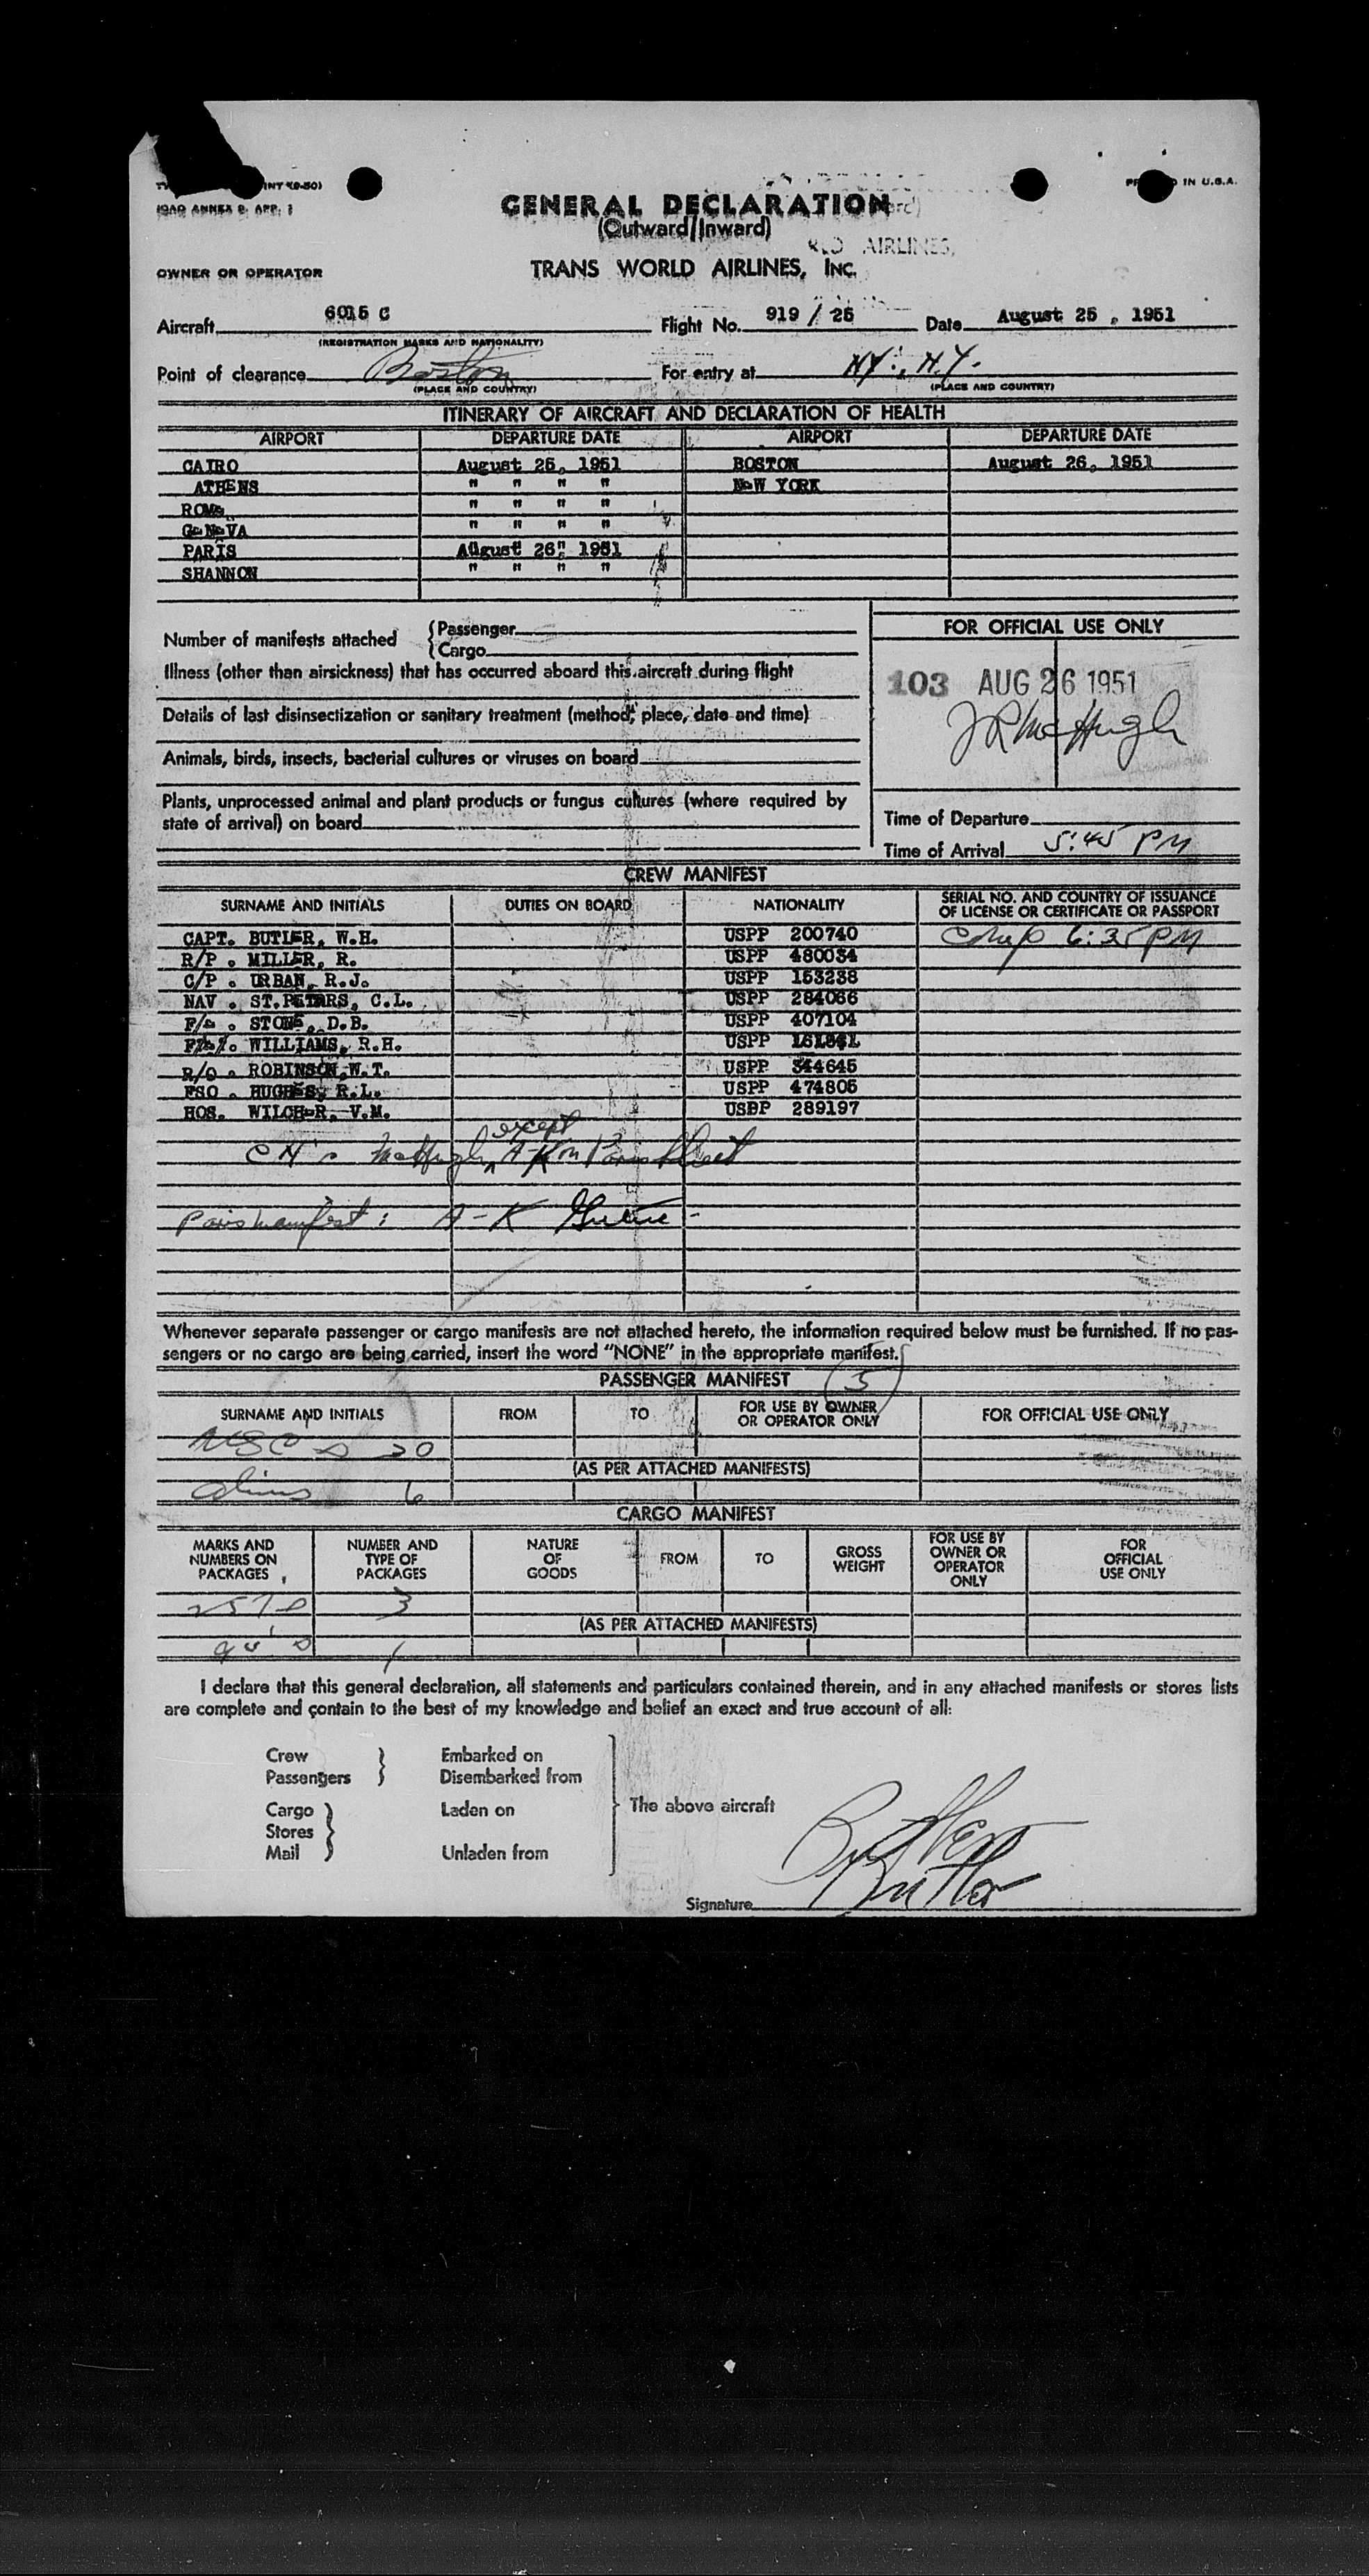 INT (9-50)
ICAO ANNEX 9, APP. 1
IN U.S.A.
GENERAL DECLARATION
(Outward/Inward)
AIRLINES,
OWNER OR OPERATOR TRANS WORLD AIRLINES, INC.
Aircraft 6015 C Flight No. 919 / 25 Date August 25, 1951
(REGISTRATION MARKS AND NATIONALITY)
Point of clearance Boston For entry at NY., N.Y.
(PLACE AND COUNTRY) (PLACE AND COUNTRY)
ITINERARY OF AIRCRAFT AND DECLARATION OF HEALTH
AIRPORT DEPARTURE DATE AIRPORT DEPARTURE DATE
CAIRO August 25, 1951 BOSTON August 26, 1951
ATHENS " " " " NEW YORK
ROME " " " "
GENEVA " " " "
PARIS August 26, 1951
SHANNON " " " "
Number of manifests attached {Passenger
{Cargo
FOR OFFICIAL USE ONLY
Illness (other than airsickness) that has occurred aboard this aircraft during flight
103 AUG 26 1951
Details of last disinsectization or sanitary treatment (method, place, date and time)
J R McHugh
Animals, birds, insects, bacterial cultures or viruses on board
Plants, unprocessed animal and plant products or fungus cultures (where required by
state of arrival) on board
Time of Departure
Time of Arrival 5:45 PM
CREW MANIFEST
SURNAME AND INITIALS DUTIES ON BOARD NATIONALITY SERIAL NO. AND COUNTRY OF ISSUANCE OF LICENSE OR CERTIFICATE OR PASSPORT
CAPT. BUTLER, W.H. USPP 200740 Comp 6:35 PM
R/P . MILLER, R. USPP 480034
C/P . URBAN, R.J. USPP 153238
NAV . ST.PETERS, C.L. USPP 284066
F/E . STONE, D.B. USPP 407104
WILLIAMS, R.H. USPP
R/O . ROBINSON, W.T. USPP 344645
FSO . HUGHES, R.L. USPP 474805
HOS. WILCHER, V.M. USPP 289197
except
McHugh A-K on Paris sheet
Paris manifest : A-K
Whenever separate passenger or cargo manifests are not attached hereto, the information required below must be furnished. If no pas-
sengers or no cargo are being carried, insert the word "NONE" in the appropriate manifest.
PASSENGER MANIFEST 5
SURNAME AND INITIALS FROM TO FOR USE BY OWNER OR OPERATOR ONLY FOR OFFICIAL USE ONLY
USC 20
(AS PER ATTACHED MANIFESTS)
Aliens 6
CARGO MANIFEST
MARKS AND NUMBERS ON PACKAGES NUMBER AND TYPE OF PACKAGES NATURE OF GOODS FROM TO GROSS WEIGHT FOR USE BY OWNER OR OPERATOR ONLY FOR OFFICIAL USE ONLY
3
(AS PER ATTACHED MANIFESTS)
1
I declare that this general declaration, all statements and particulars contained therein, and in any attached manifests or stores lists
are complete and contain to the best of my knowledge and belief an exact and true account of all:
Crew } Embarked on
Passengers } Disembarked from
Cargo } Laden on The above aircraft
Stores }
Mail } Unladen from
Butler
Signature Butler